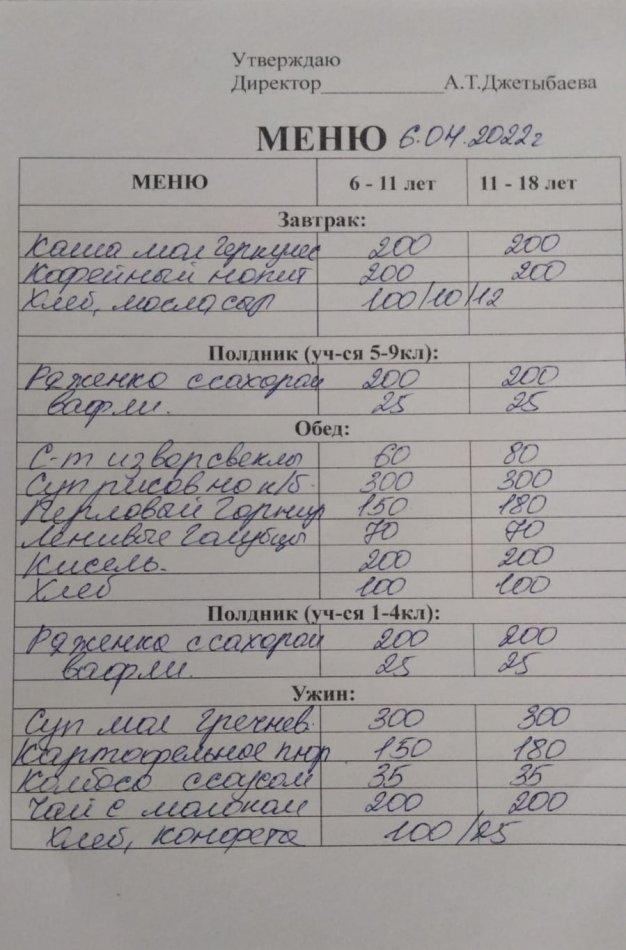 Утверждаю
Директор____________А.Т.Джетыбаева
МЕНЮ 6.04.2022г
МЕНЮ 6 - 11 лет 11 - 18 лет
Завтрак:
Каша мол Геркулес 200 200
Кофейный напит 200 200
Хлеб, масло сыр 100/10/12
Полдник (уч-ся 5-9кл):
Ряженка с сахаром 200 200
вафли. 25 25
Обед:
С-т из вар свеклы 60 80
Суп рисов на к/б. 300 300
Перловый Гарнир 150 180
Ленивые Голубцы 70 70
Кисель. 200 200
Хлеб 100 100
Полдник (уч-ся 1-4кл):
Ряженка с сахаром 200 200
вафли. 25 25
Ужин:
Суп мол гречнев. 300 300
Картофельное пюр 150 180
Колбаса с соусом 35 35
Чай с молоком 200 200
Хлеб, конфета 100/25